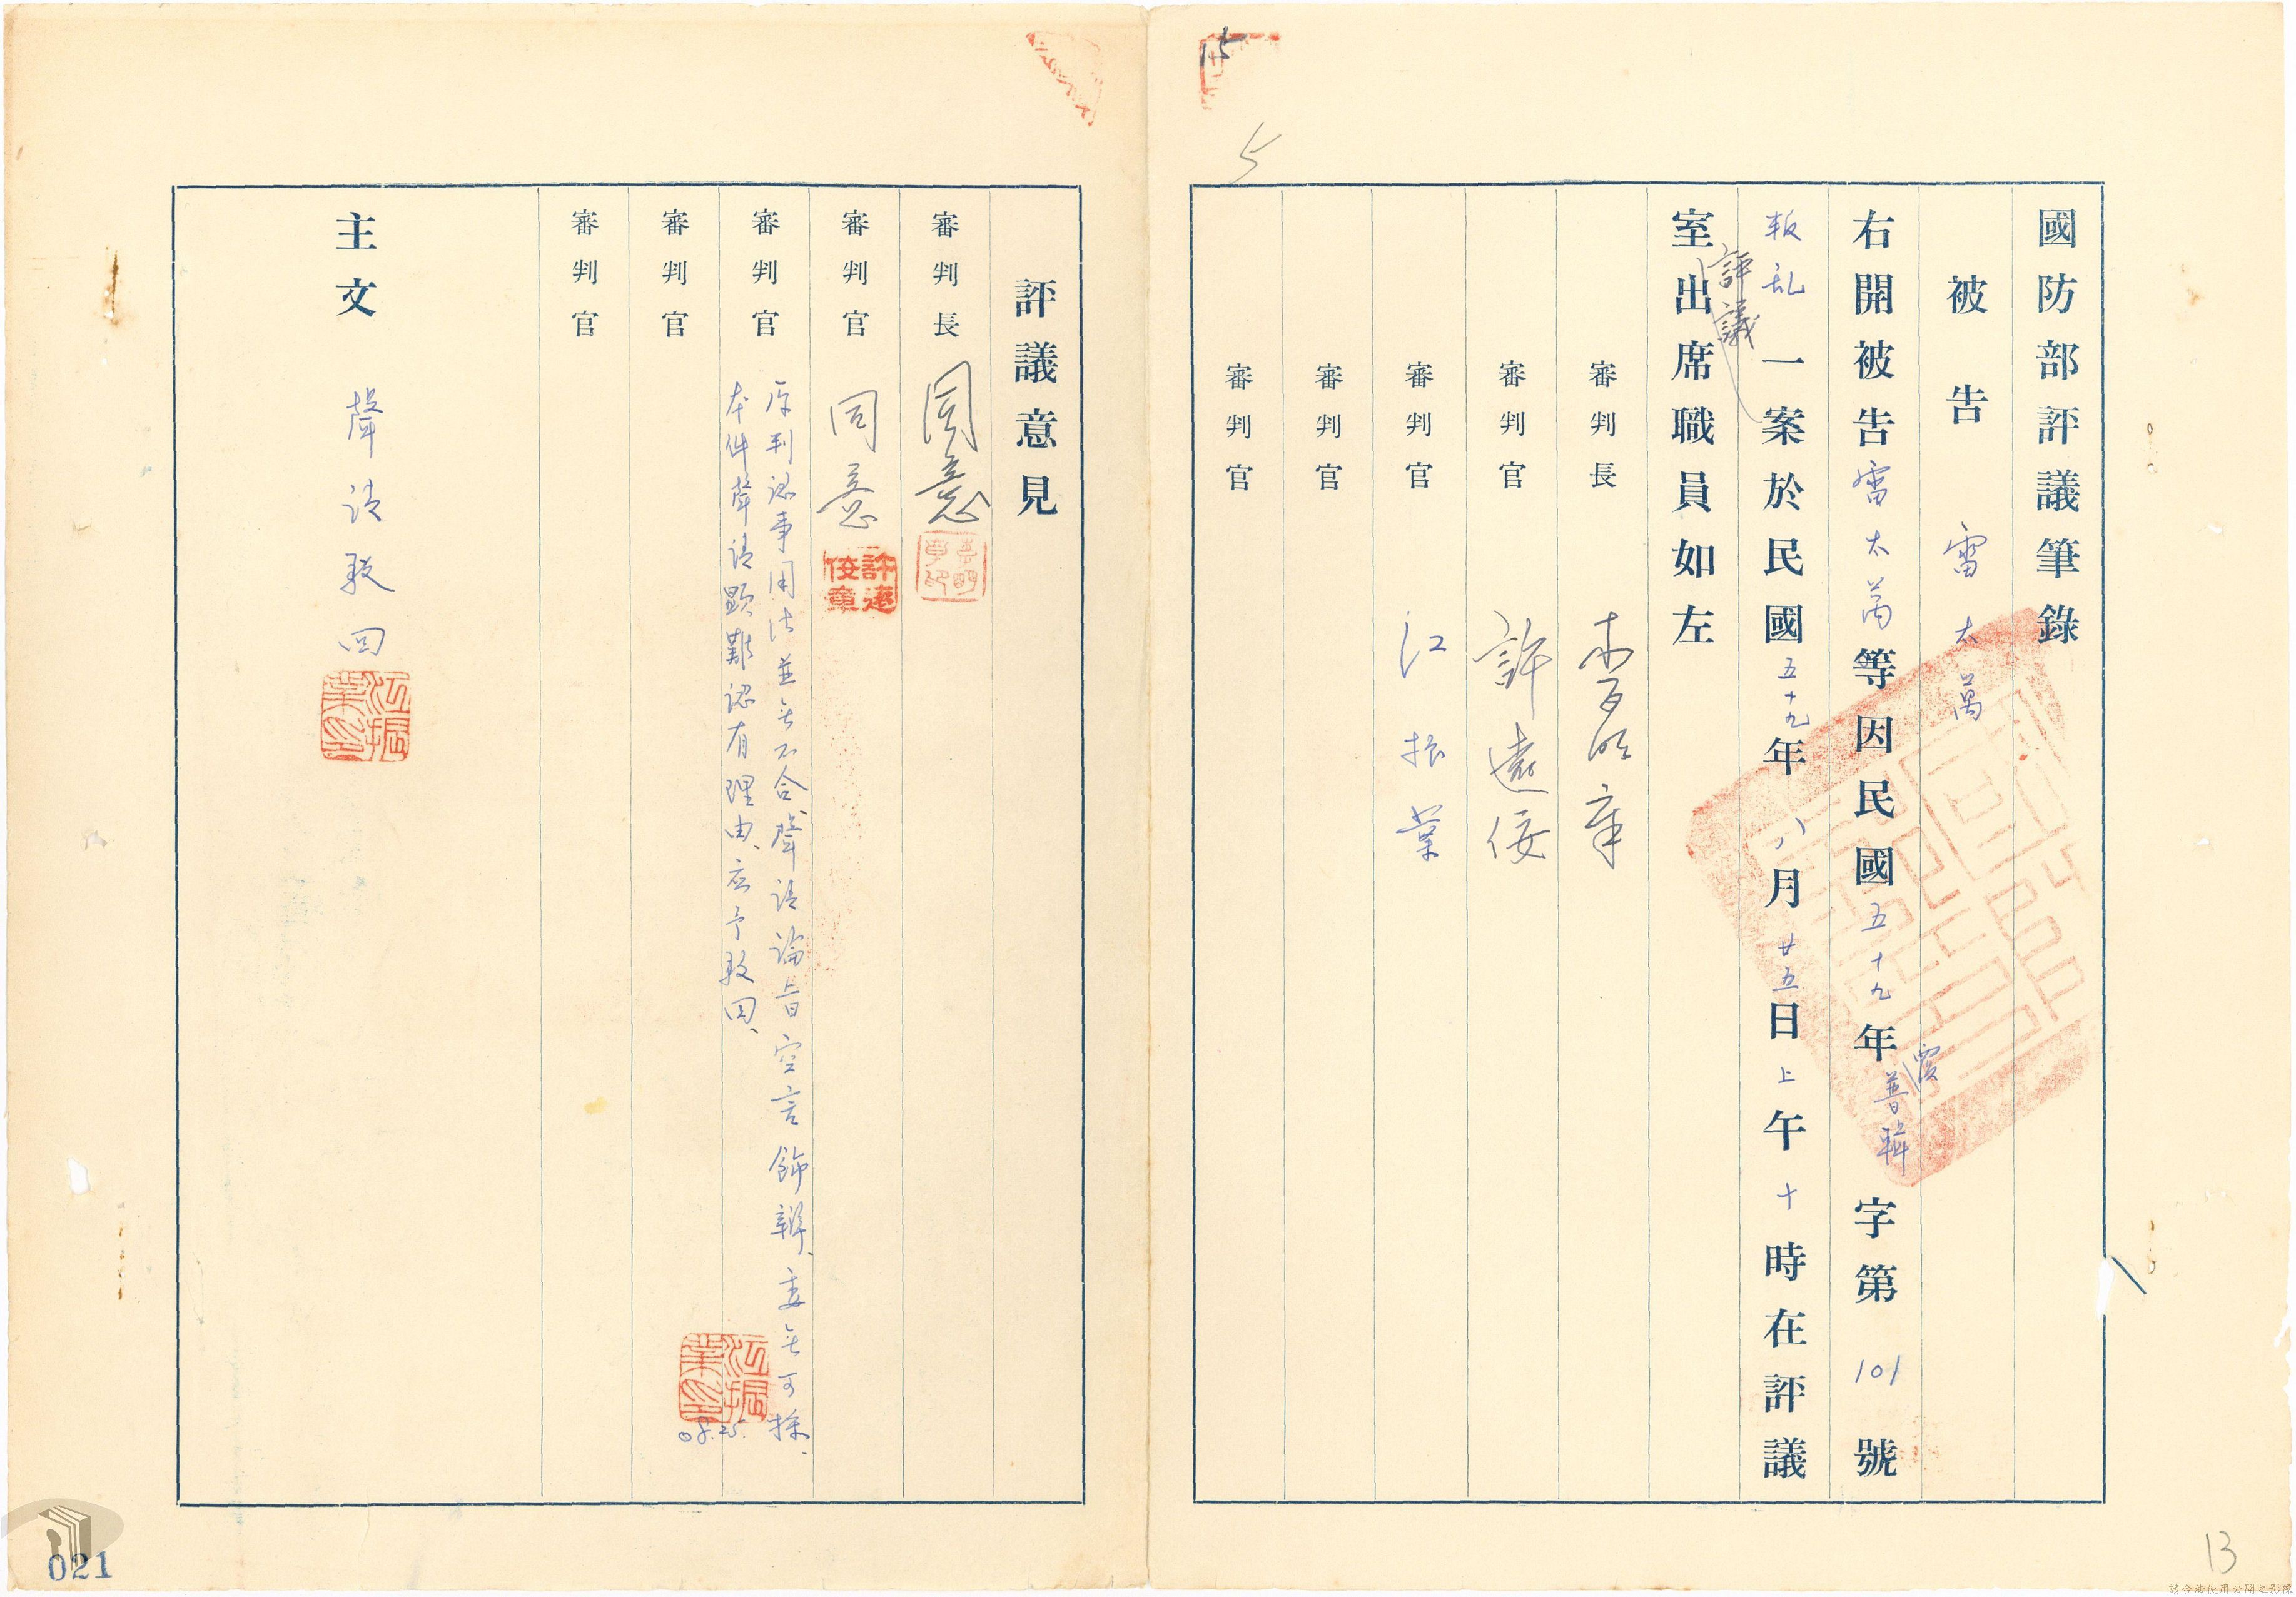 國防部評議筆錄
被告 雷太萬
右開被告雷太萬等因民國五十九年覆普輯字第101號
叛乱一案於民國五十九年八月廿五日上午十時在評議
評議
室出席職員如左
審判長
審判官 許遠佞
審判官 江振業
審判官
審判官
15
5
13
評議意見
審判長 同意
審判官 同意
許遠佞章
審判官 原判認事用法並無不合、聲請論旨空言飾辯、委無可採、
本件聲請顯難認有理由、应予駁回、
江振業印
8.25.
審判官
審判官
主文 聲請駁回
江振業印
021
請合法使用公開之影像